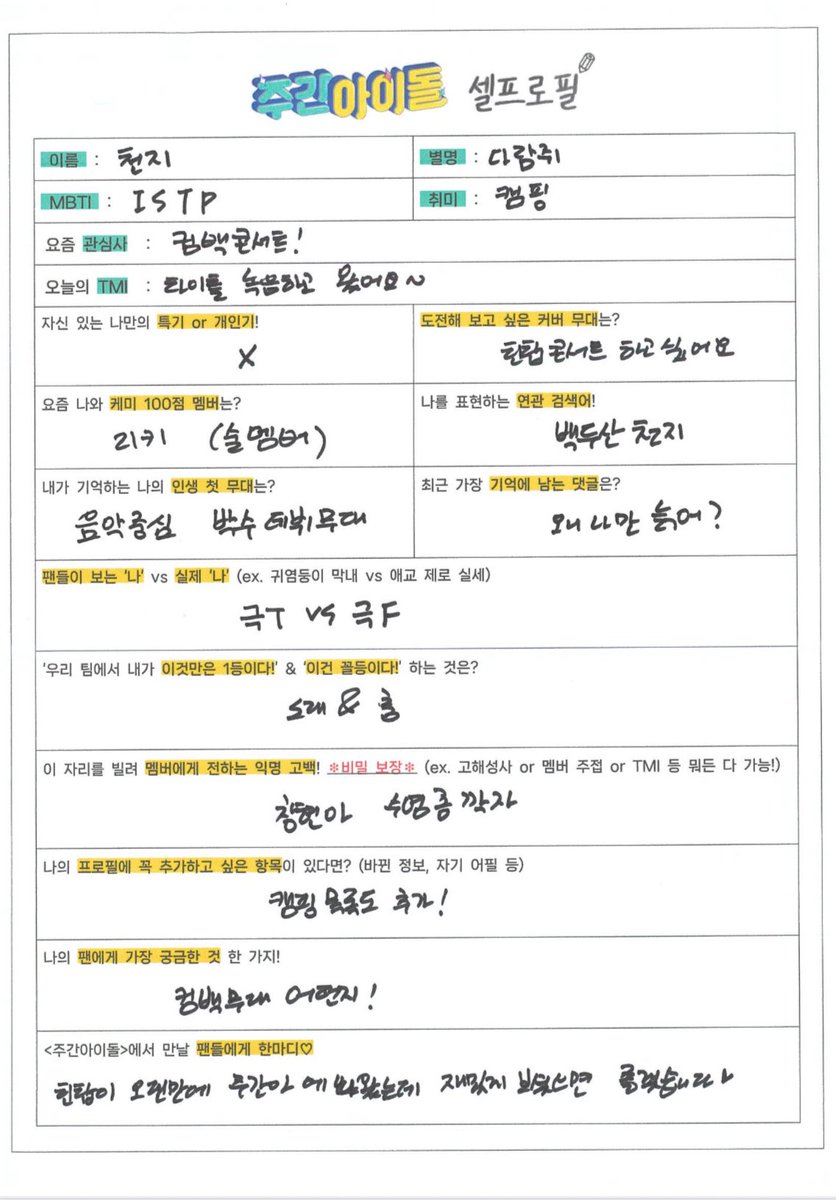 주간아이돌 셀프로필
이름 : 천지
별명 : 다람쥐
MBTI : ISTP
취미 : 캠핑
요즘 관심사 : 컴백콘서트!
오늘의 TMI : 타이틀 녹음하고 왔어요~
자신 있는 나만의 특기 or 개인기!
X
도전해 보고 싶은 커버 무대는?
틴탑콘서트 하고싶어요
요즘 나와 케미 100점 멤버는?
리키 (술멤버)
나를 표현하는 연관 검색어!
백두산 천지
내가 기억하는 나의 인생 첫 무대는?
음악중심 박수 데뷔무대
최근 가장 기억에 남는 댓글은?
왜 나만 늙어?
팬들이 보는 '나' vs 실제 '나' (ex. 귀염둥이 막내 vs 애교 제로 실세)
극T VS 극F
'우리 팀에서 내가 이것만은 1등이다!' & '이건 꼴등이다!' 하는 것은?
노래 & 춤
이 자리를 빌려 멤버에게 전하는 익명 고백! *비밀 보장* (ex. 고해성사 or 멤버 주접 or TMI 등 뭐든 다 가능!)
창현아 수염좀 깍자
나의 프로필에 꼭 추가하고 싶은 항목이 있다면? (바뀐 정보, 자기 어필 등)
캠핑 목록도 추가!
나의 팬에게 가장 궁금한 것 한 가지!
컴백무대 어떤지!
<주간아이돌>에서 만날 팬들에게 한마디♡
틴탑이 오랜만에 주간아 에 나왔는데 재밌게 보셨으면 좋겠습니다~